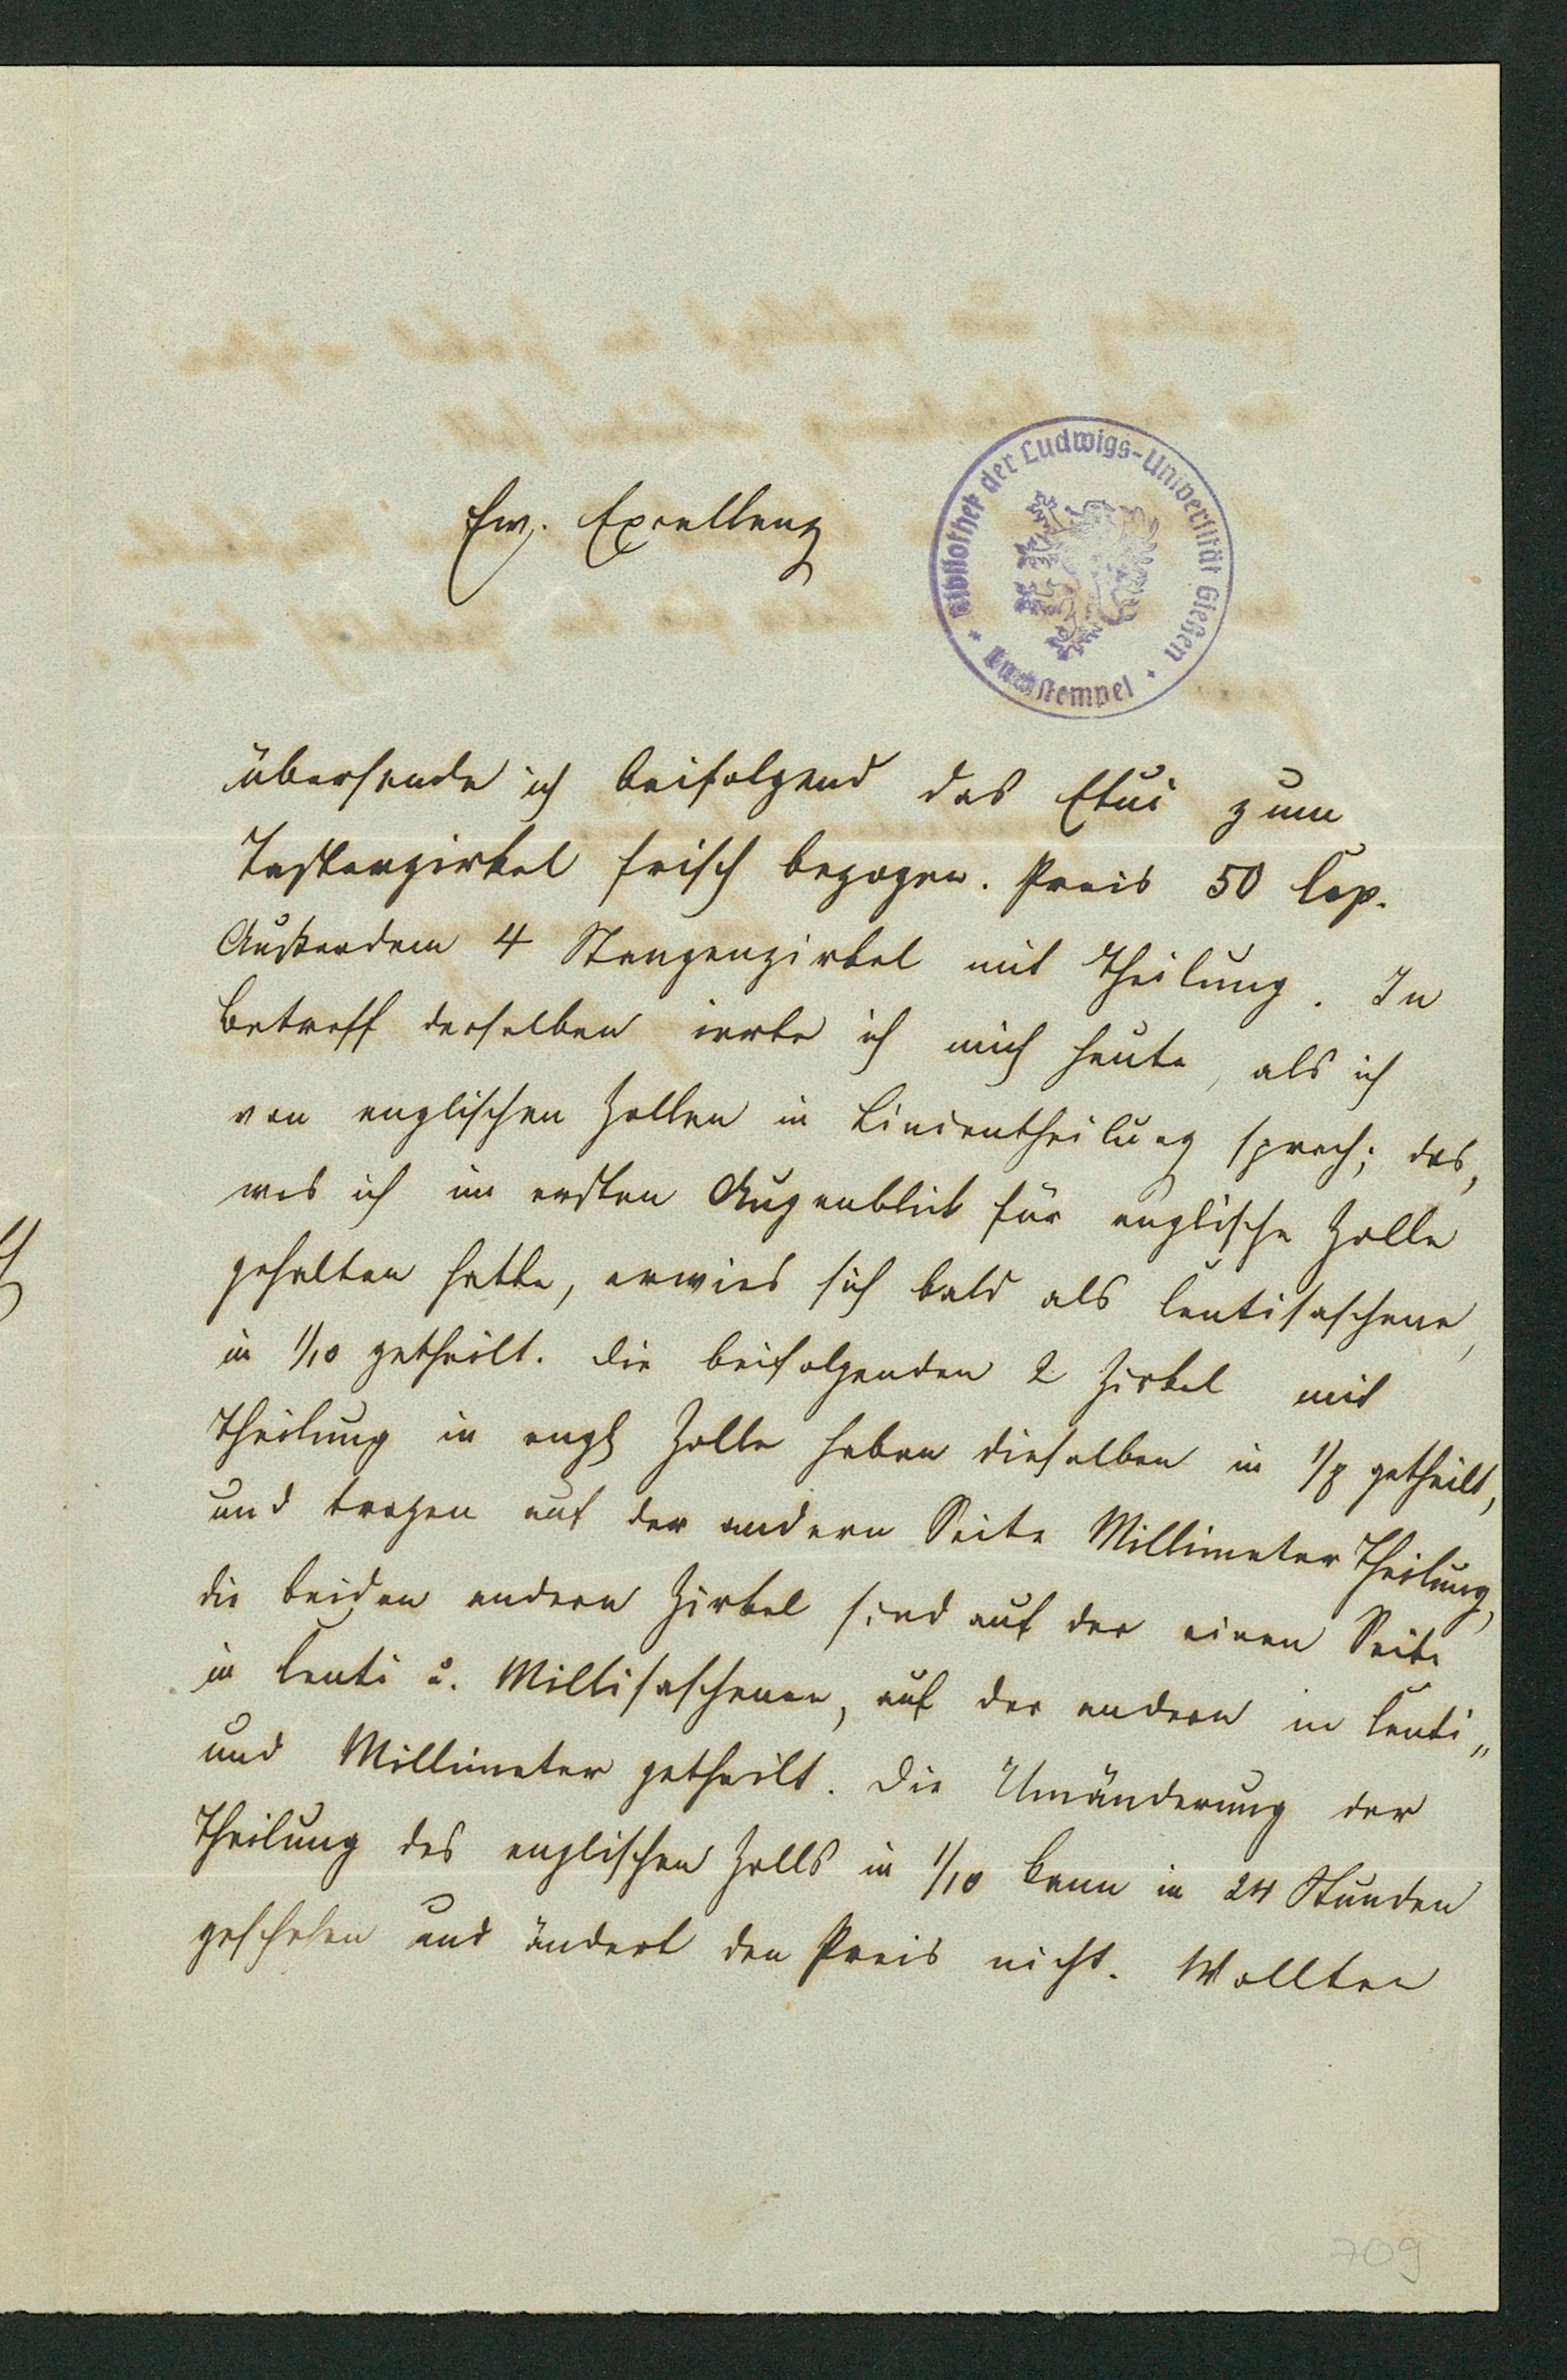 Bibliothek der Ludwigs-Universität Gießen
Buchstempel
Ew. Excellenz
übersende ich beifolgend das Etui zum
Tasterzirkel frisch bezogen. Preis 50 Cop.
Außerdem 4 Stangenzirkel mit Theilung. In
Betreff derselben irrte ich mich heute, als ich
von englischen Zollen in Linientheilung sprach; das,
was ich im ersten Augenblick für englische Zolle
gehalten hatte, erwies sich bald als Centisaschene,
in 1/10 getheilt. Die beifolgenden 2 Zirkel mit
Theilung in engl Zolle haben dieselben in 1/8 getheilt,
und tragen auf der andern Seite Millimeter Theilung,
die beiden andern Zirkel sind auf der einen Seite
in Centi u. Millisaschenen, auf der andern in Centi„
und Millimeter getheilt. Die Umänderung der
Theilung des englischen Zolls in 1/10 kann in 24 Stunden
geschehen und ändert den Preis nicht. Wollten
709